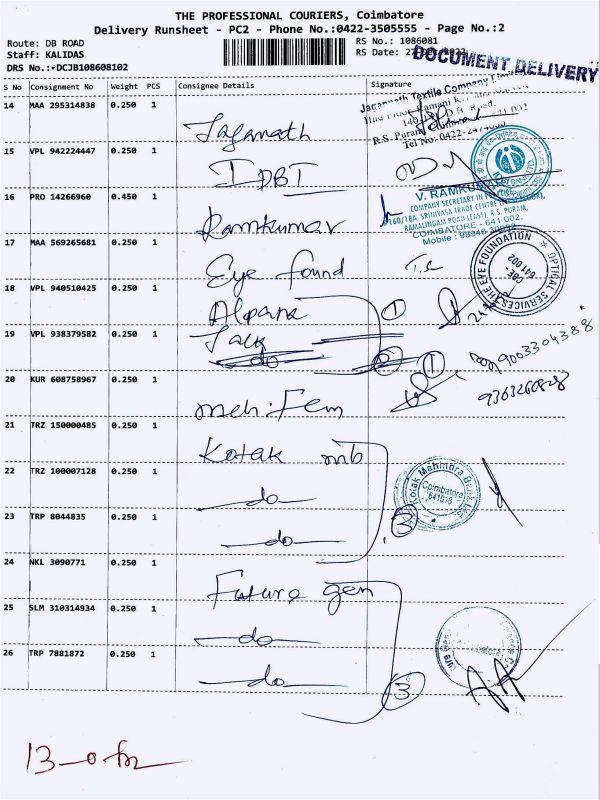 THE PROFESSIONAL COURIERS, Coimbatore
Delivery Runsheet - PC2 - Phone No.:0422-3505555 - Page No.:2
Route: DB ROAD
RS No.: 1086081
Staff: KALIDAS
DRS No.:*DCJB108608102
DOCUMENT DELIVERY
S No Consignment No Weight PCS Consignee Details Signature
14 MAA 295314838 0.250 1 Jaganath
Jagannath Textile Company
15 VPL 942224447 0.250 1 IDBI
16 PRO 14266960 0.450 1 Ramkumar
V. RAMKUMAR
COMPANY SECRETARY IN PRACTICE
RAMALINGAM ROAD (EAST), R.S. PURAM,
COIMBATORE - 641 002.
17 MAA 569265681 0.250 1 Eye found
THE EYE FOUNDATION
OPTICAL SERVICES
CBE
641 002
18 VPL 940510425 0.250 1 Alpana 1
19 VPL 938379582 0.250 1 do 1
9003304388
20 KUR 608758967 0.250 1
21 TRZ 150000485 0.250 1 Kotak mb
22 TRZ 100007128 0.250 1 do
Kotak Mahindra Bank Ltd
Coimbatore
23 TRP 8044835 0.250 1 do 3
24 NKL 3090771 0.250 1 Future gen
25 SLM 310314934 0.250 1 do
26 TRP 7881872 0.250 1 do 3